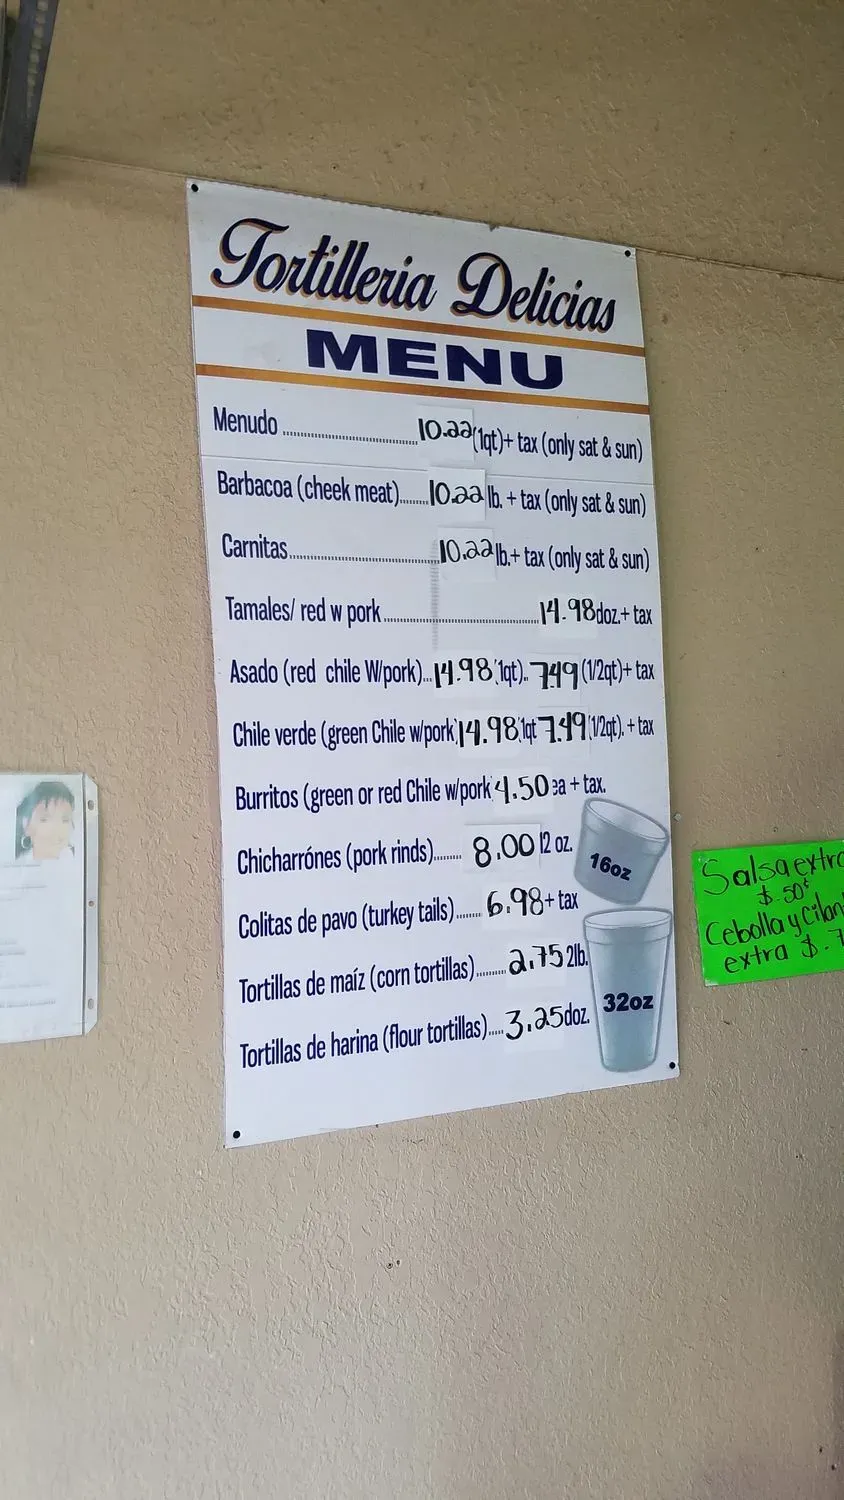 Tortilleria Delicias
MENU
Menudo ........................ 10.22 (1qt)+ tax (only sat & sun)
Barbacoa (cheek meat)....... 10.22 lb. + tax (only sat & sun)
Carnitas........................ 10.22 lb.+ tax (only sat & sun)
Tamales/ red w pork........................ 14.98 doz.+ tax
Asado (red chile W/pork)... 14.98 (1qt).. 7.49 (1/2qt)+ tax
Chile verde (green Chile w/pork) 14.98 1qt 7.49 (1/2qt). + tax
Burritos (green or red Chile w/pork 4.50 ea + tax.
Chicharrónes (pork rinds)....... 8.00 12 oz.
Colitas de pavo (turkey tails)...... 6.98 + tax
Tortillas de maíz (corn tortillas)........ 2.75 2lb.
Tortillas de harina (flour tortillas).... 3.25 doz.
16oz
32oz
Salsa extra
$.50¢
Cebolla y
extra $.7